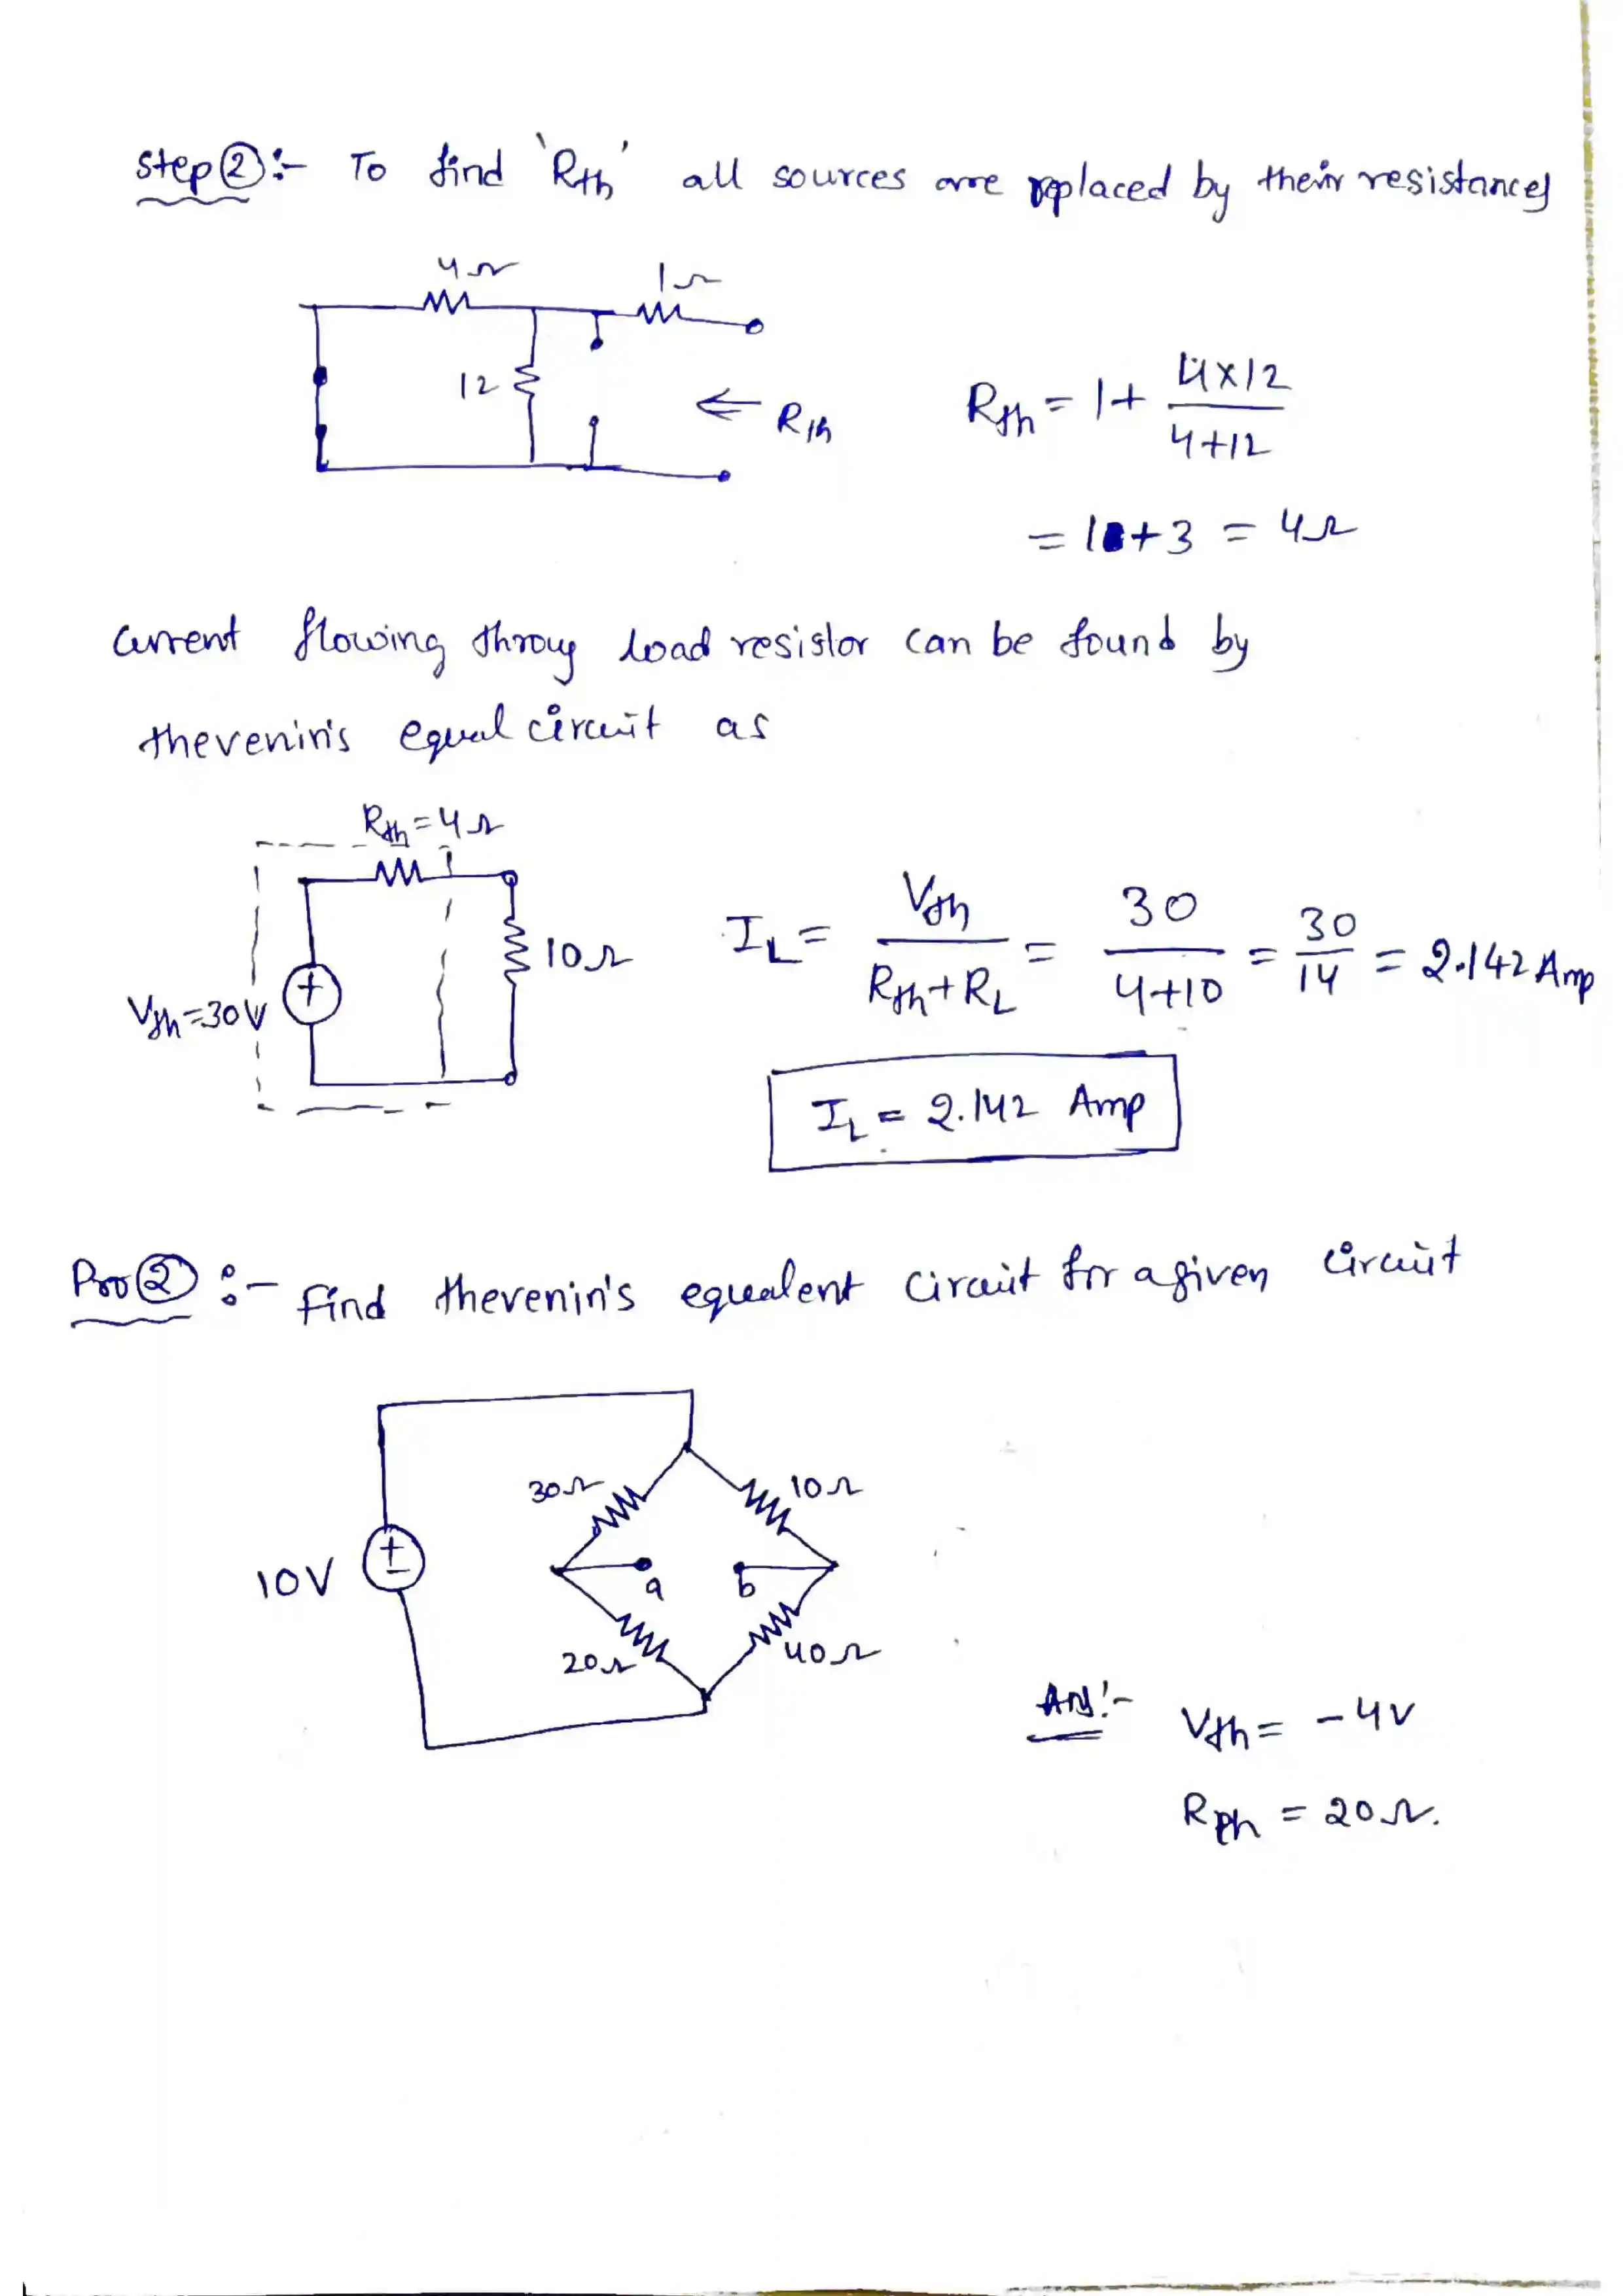 Step ② :- To find 'Rth' all sources are replaced by their resistances
4Ω
1Ω
12
⇐ Rth
Rth = 1 + 4×12 / 4+12
= 1 + 3 = 4Ω
Current flowing throug load resistor can be found by
thevenin's equal circuit as
Rth = 4Ω
Vth = 30V
+
10Ω
IL = Vth / Rth + RL = 30 / 4+10 = 30 / 14 = 2.142 Amp
IL = 2.142 Amp
Pro ② :- Find thevenin's equalent circuit for a given circuit
30Ω
10Ω
10V
+
−
a
b
20Ω
40Ω
Ans :- Vth = -4V
Rth = 20Ω.